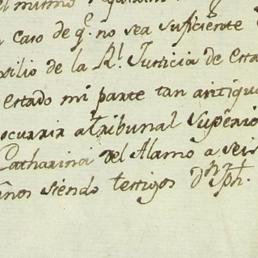 el mismo
en caso de q.e no sea suficiente
auxilio de la R.l Justicia de esta
estado mi parte tan antiquo
ocurrir a tribunal Superio
Catharina del Alamo a seis
años siendo testigos D.n Jph.